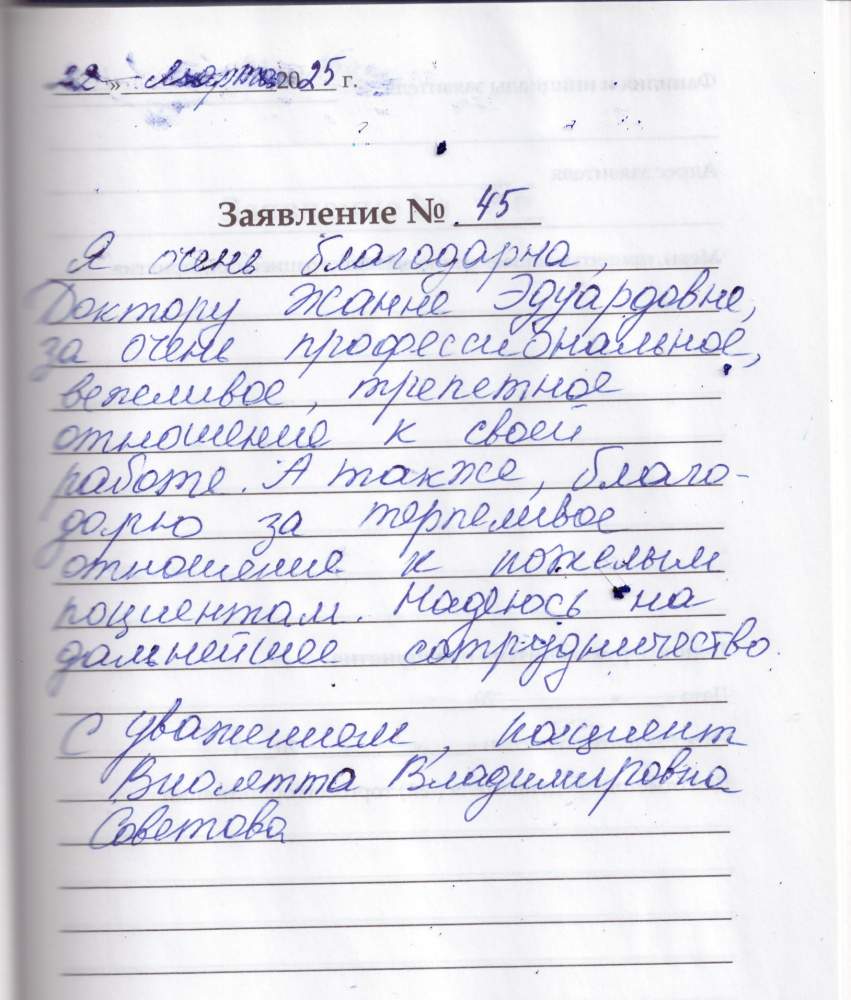 22 » марта 2025 г.
Заявление № 45
Я очень благодарна,
Доктору Жанне Эдуардовне,
за очень профессиональное,
вежливое, трепетное
отношение к своей
работе. А также, благо-
дарю за терпеливое
отношение к пожелым
пациентам. Надеюсь на
дальнейшее сотрудничество.
С уважением, пациент
Виолетта Владимировна
Советова